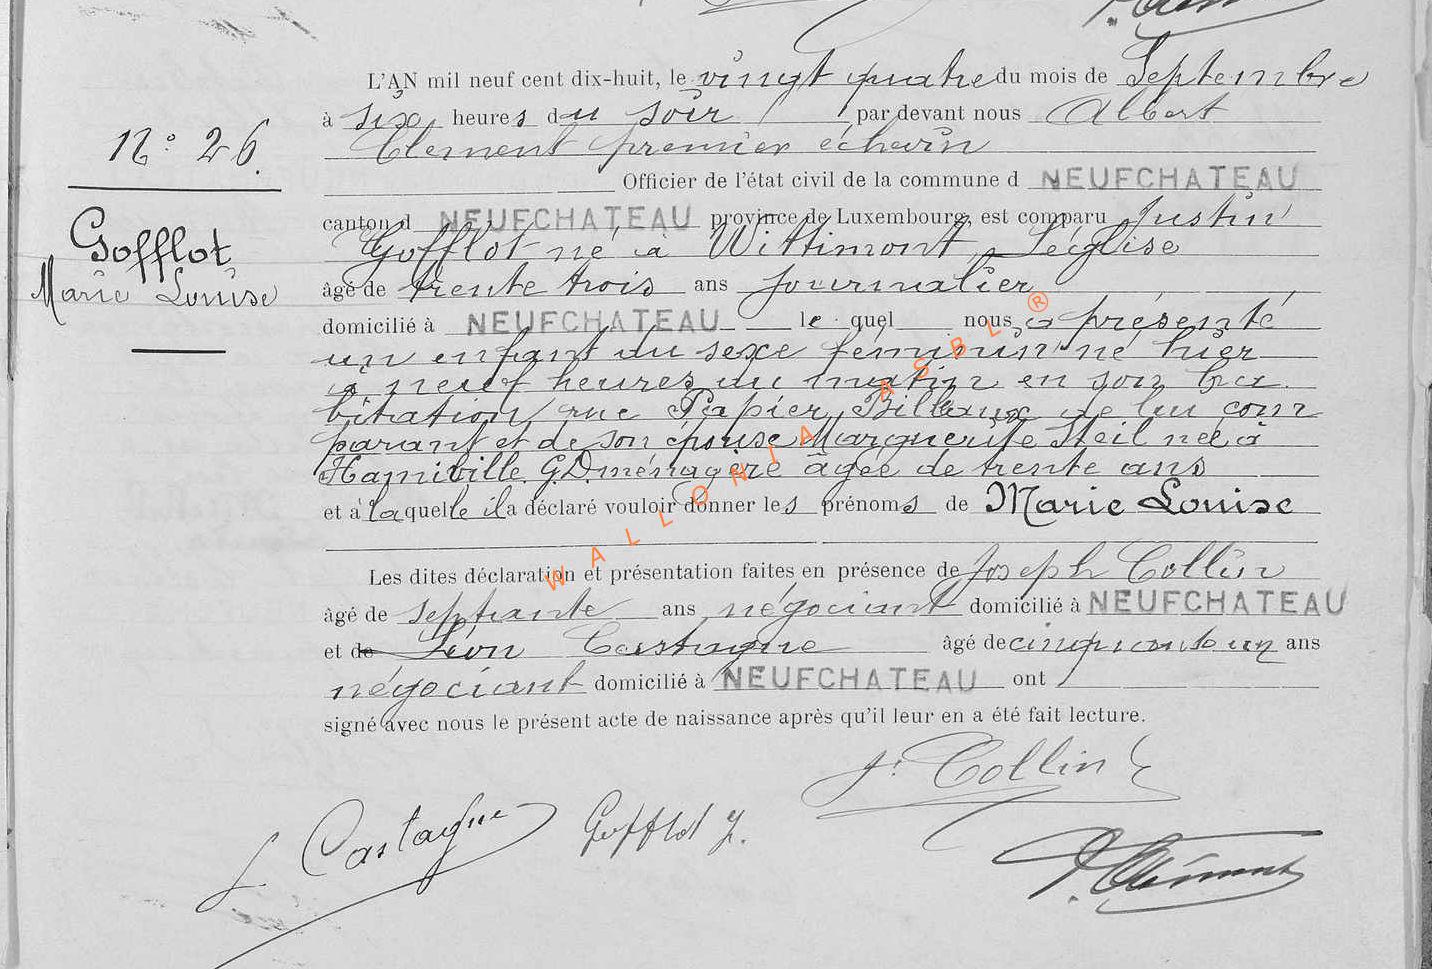 L'AN mil neuf cent dix-huit, le vingt quatre du mois de Septembre
à six heures du soir par devant nous Albert
N° 26.
Clement premier échevin
Officier de l'état civil de la commune d NEUFCHATEAU
canton d NEUFCHATEAU province de Luxembourg, est comparu Justin
Gofflot
Marie Louise
Gofflot né à Wittimont, Léglise
âgé de trente trois ans journalier
domicilié à NEUFCHATEAU le quel nous a présenté
un enfant du sexe féminin né hier
à neuf heures du matin en son ha
bitation rue Papier, Billaux de lui com
parant et de son épouse Marguerite Steil née à
Hamiville G.D. ménagère âgée de trente ans
et à laquelle il a déclaré vouloir donner les prénoms de Marie Louise
Les dites déclaration et présentation faites en présence de Joseph Collin
âgé de septante ans négociant domicilié à NEUFCHATEAU
et de Léon Castagne âgé de cinquante un ans
négociant domicilié à NEUFCHATEAU ont
signé avec nous le présent acte de naissance après qu'il leur en a été fait lecture.
J. Collin
L Castagne Gofflot J.
A. Clément
WALLONIA ASBL ®